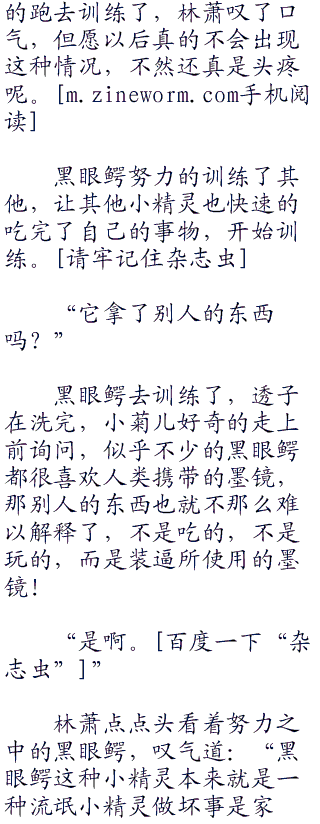 的跑去训练了，林萧叹了口
气，但愿以后真的不会出现
这种情况，不然还真是头疼
呢。[m.zineworm.com手机阅
读]
黑眼鳄努力的训练了其
他，让其他小精灵也快速的
吃完了自己的事物，开始训
练。[请牢记住杂志虫]
“它拿了别人的东西
吗？”
黑眼鳄去训练了，透子
在洗完，小菊儿好奇的走上
前询问，似乎不少的黑眼鳄
都很喜欢人类携带的墨镜，
那别人的东西也就不那么难
以解释了，不是吃的，不是
玩的，而是装逼所使用的墨
镜！
“是啊。[百度一下“杂
志虫”]”
林萧点点头看着努力之
中的黑眼鳄，叹气道：“黑
眼鳄这种小精灵本来就是一
种流氓小精灵做坏事是家